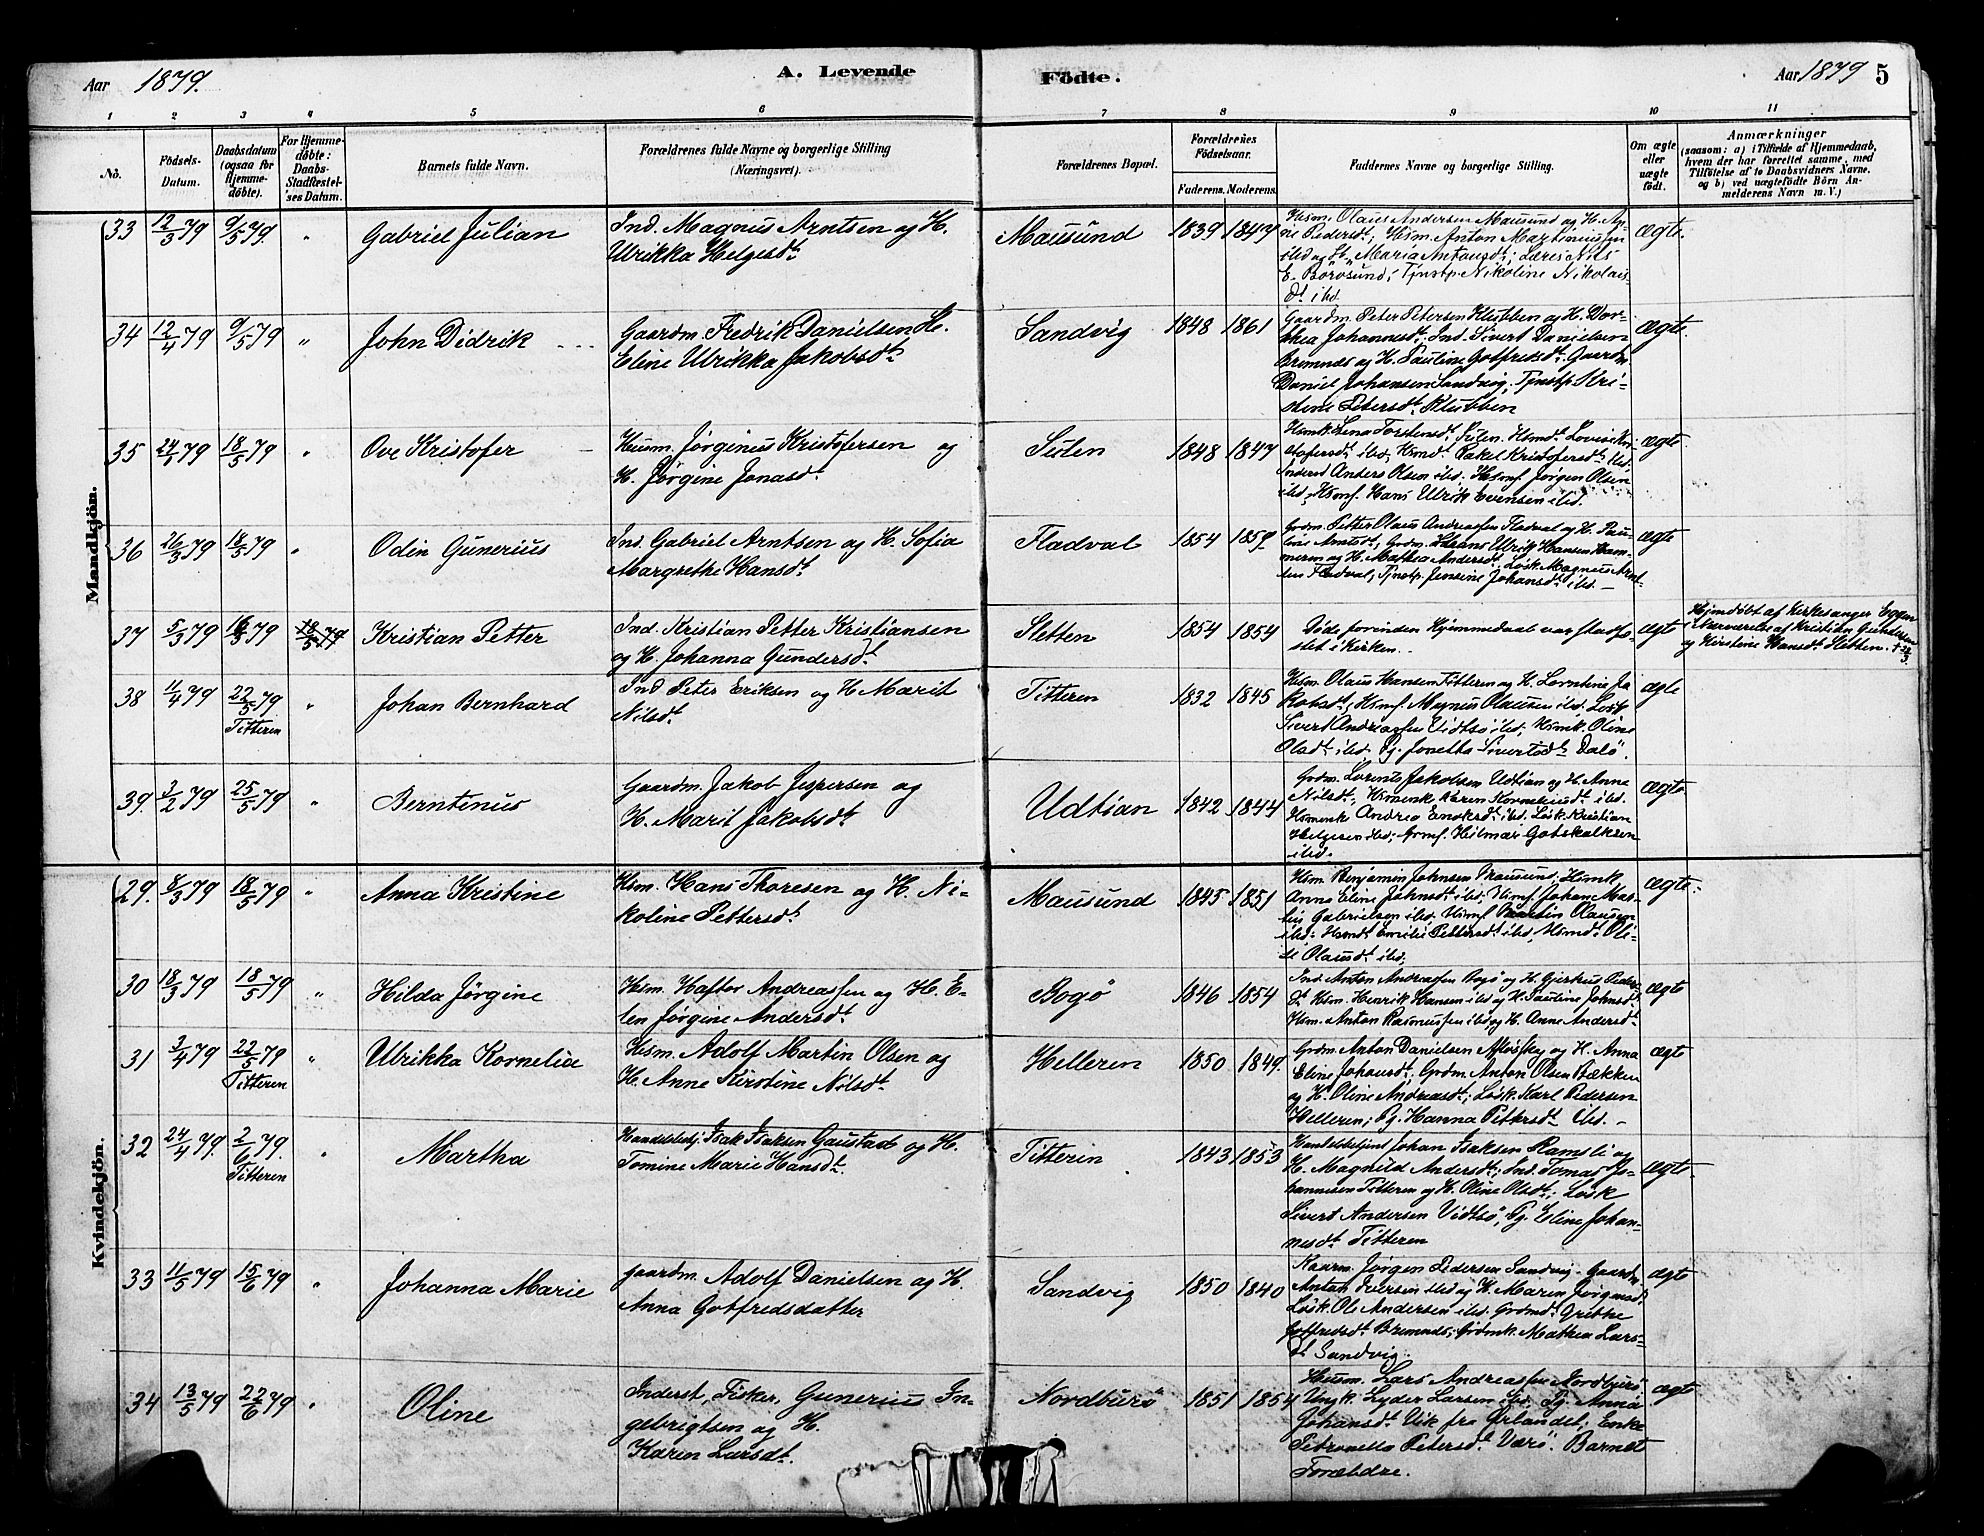 Aar 1879.
A. Levende
Födte.
Aar 1879
5
1 2 3 4 5 6 7 8 9 10 11
No.
Födsels-
Datum.
Daabsdatum
(ogsaa for
Hjemme-
døbte).
For Hjemme-
døbte:
Daabs-
Stadfæstel-
ses Datum.
Barnets fulde Navn.
Forældrenes fulde Navne og borgerlige Stilling
(Næringsvei).
Forældrenes Bopæl.
Forældrenes
Födselsaar.
Faderens. Moderens.
Faddernes Navne og borgerlige Stilling.
Om ægte
eller
uægte
født.
Anmærkninger
(saasom: a) i Tilfælde af Hjemmedaab,
hvem der har forrettet samme, med
Tilföielse af to Daabsvidners Navne,
og b) ved uægtefödte Börn An-
melderens Navn m. V.)
Mandkjön.
33 12/3 79 9/5 79. " Gabriel Julian
Ind. Magnus Arntsen og H.
Ulrikka Helgesdt.
Mausund 1839 1847
Hsm. Olaus Andersen Mausund og H.
Pedersdt., Hsm. Anton Martinussen
ibd og Maria Antonsdt., Nils
E. Borøsund, Tjnstp. Nikoline Nikolais-
dt. ibd.
ægte.
34 12/4 79 9/5 79 " John Didrik
Gaardm. Fredrik Danielsen H.
Eline Ulrikka Jakobsdt.
Sandvig 1848 1861
Gaardm. Peter Petersen Klubben og H. Dor-
thea Johannesdt. Ind. Sivert Danielsen
Bremnes og H. Pauline Gotfredsdt. Gaardm.
Daniel Johansen Sandvig, Tjnstp. Kri-
stine Petersdt. Klubben
ægte.
35 18/5 79 " Ove Kristofer
Husm. Jørginus Kristofersen og
H. Jørgine Jonasdt.
Sulen 1848 1847
Hsmk. Lena Torstensdt. Sulen. Hsmdt. Lovise Kri-
stofersdt. ibd, Hsmdt. Kristofersdt. ibd.
Anders Olsen ibd. Hsmf. Jørgen Olsen
ibd, Hsmf. Hans Ulrik Evensen ibd.
ægte.
36 26/3 79 18/5 79 " Odin Gunerius
Ind. Gabriel Arntsen og H. Sofia
Margrethe Hansdt.
Fladval 1854 1859
Grdm. Petter Olaus Andreassen Fladval og H. Pau-
line Arntsdt, Grdm. Hans Ulrik Hansen Ham-
og H. Mathea Andersdt. Løsk. Magnus Arnt-
sen Fladval, Tjnstp. Jensine Johansdt. ibd.
ægte
37 5/3 79 79 18/5 79 Kristian Petter
Ind. Kristian Petter Kristiansen
og H. Johanna Gundersdt.
Sletten 1854 1854
Døde forinden Hjemmedaab var stadfæ-
stet i Kirken.
ægte
Hjemdøbt af Kirkesanger
i Nærværelse af Kristian Gundersen
og Kirstine Hansdt. Sletten.
38 4/4 79 22/5 79 Titteren " Johan Bernhard
Ind. Peter Eriksen og H. Marit
Nilsdt.
Titteren 1832 1845
Hsm. Olaus Hansen Titteren og H. Lorntine Ja-
kobsdt, Hsmf. Magnus Olausen ibd. Løsk
Sivert Andreassen Vidtsø ibd, Hsmk. Oline
Olsdt. ibd. Pg. Jonetta Sivertsdt. Dalø.
ægte
39. 3/2 79 25/5 79 " Berntinus
Gaardm. Jakob Jespersen og
H. Marit Jakobsdt.
Udtian 1842 1844
Grdm. Lorents Jakobsen Udtian og H. Anna
Nilsdt., Hsmenk. Karen Korneliusdt. ibd.
Hsmenke Andrea Enoksdt. ibd. Løsk. Kristian
Helgesen ibd, Grmf. Hilmar Gotskalksen
ibd.
ægte
Kvindekjön.
29. 8/3 79 18/5 79 " Anna Kristine
Hsm. Hans Thoresen og H. Ni-
koline Pettersdt.
Mausund 1845 1851
Hsm. Benjamin Johnsen Mausund. Hsmk.
Anna Eline Johnsdt. ibd, Hsmf. Johan Mar-
tin Gabrielsen ibd. Hsmf. Martin Olausen
ibd. Hsmdt. Emilie Pettersdt. ibd, Hsmdt. Oli-
de Olausdt. ibd.
ægte.
30 18/3 79 18/5 79 " Hilda Jørgine
Hsm. Haftor Andreassen og H. E-
len Jørgine Andersdt.
Bogø 1846 1854
Ind. Anton Andreassen Bogø og H. Peders-
dt. Hsm. Henrik Hansen ibd og H. Pauline Johnsdt.
Hsm. Anton Rasmussen ibd og H. Anne Andersdt.
ægte
31 3/4 79 22/5 79 Titteren " Ulrikka Kornelia
Hsm. Adolf Martin Olsen og
H. Anne Kirstine Nilsdt.
Helleren 1850 1849.
Grdm. Anton Danielsen og H. Anna
Eline Johansdt, Grdm. Anton Olsen Bækken
og H. Oline Andreasdt; Løsk. Karl Pedersen
Helleren; Pg. Hanna Pettersdt. ibd.
ægte
32 24/4 79. 2/6 79. Titteren " Martha
Handelsbetj. Isak Isaksen Gaustad og H.
Tomine Marie Hansdt.
Titterin 1843 1853
Handelsbetjent Johan Isaksen Ramsli og
H. Magnild Andersdt; Ind. Tomas Jo-
hannesen Titteren og H. Oline Olsdt.; Løsk
Sivert Andersen Vidtsø, Pg. Eline Johan-
nesdt. Titteren
ægte.
33 11/5 79 15/6 79 " Johanna Marie
Gaardm. Adolf Danielsen og H.
Anna Gotfredsdatter
Sandvig 1850 1840
Kaarm. Jørgen Pedersen Sandvig. Gaardm.
Antan Iversen ibd og H. Maren Jørgensdt.
Løsk. Ole Andersen ibd. Grdmd. Grethe
Gotfredsdt. Bremnes; Grdmk. Mathea Lars-
dt. Sandvig.
ægte
34 13/5 79 22/6 79 " Oline
Inderst, Fisker, Gunerius In-
gebrigtsen og H.
Karen Larsdt.
Nordburø 1851 1854
Husm. Lars Andreassen Nordburø
Ungk. Lyder Larsen ibd. Pg. Anna
Johansdt. Vik fra Ørlandet, Enke
Petronella Petersdt. Værø. Barnets
Forældre.
ægte